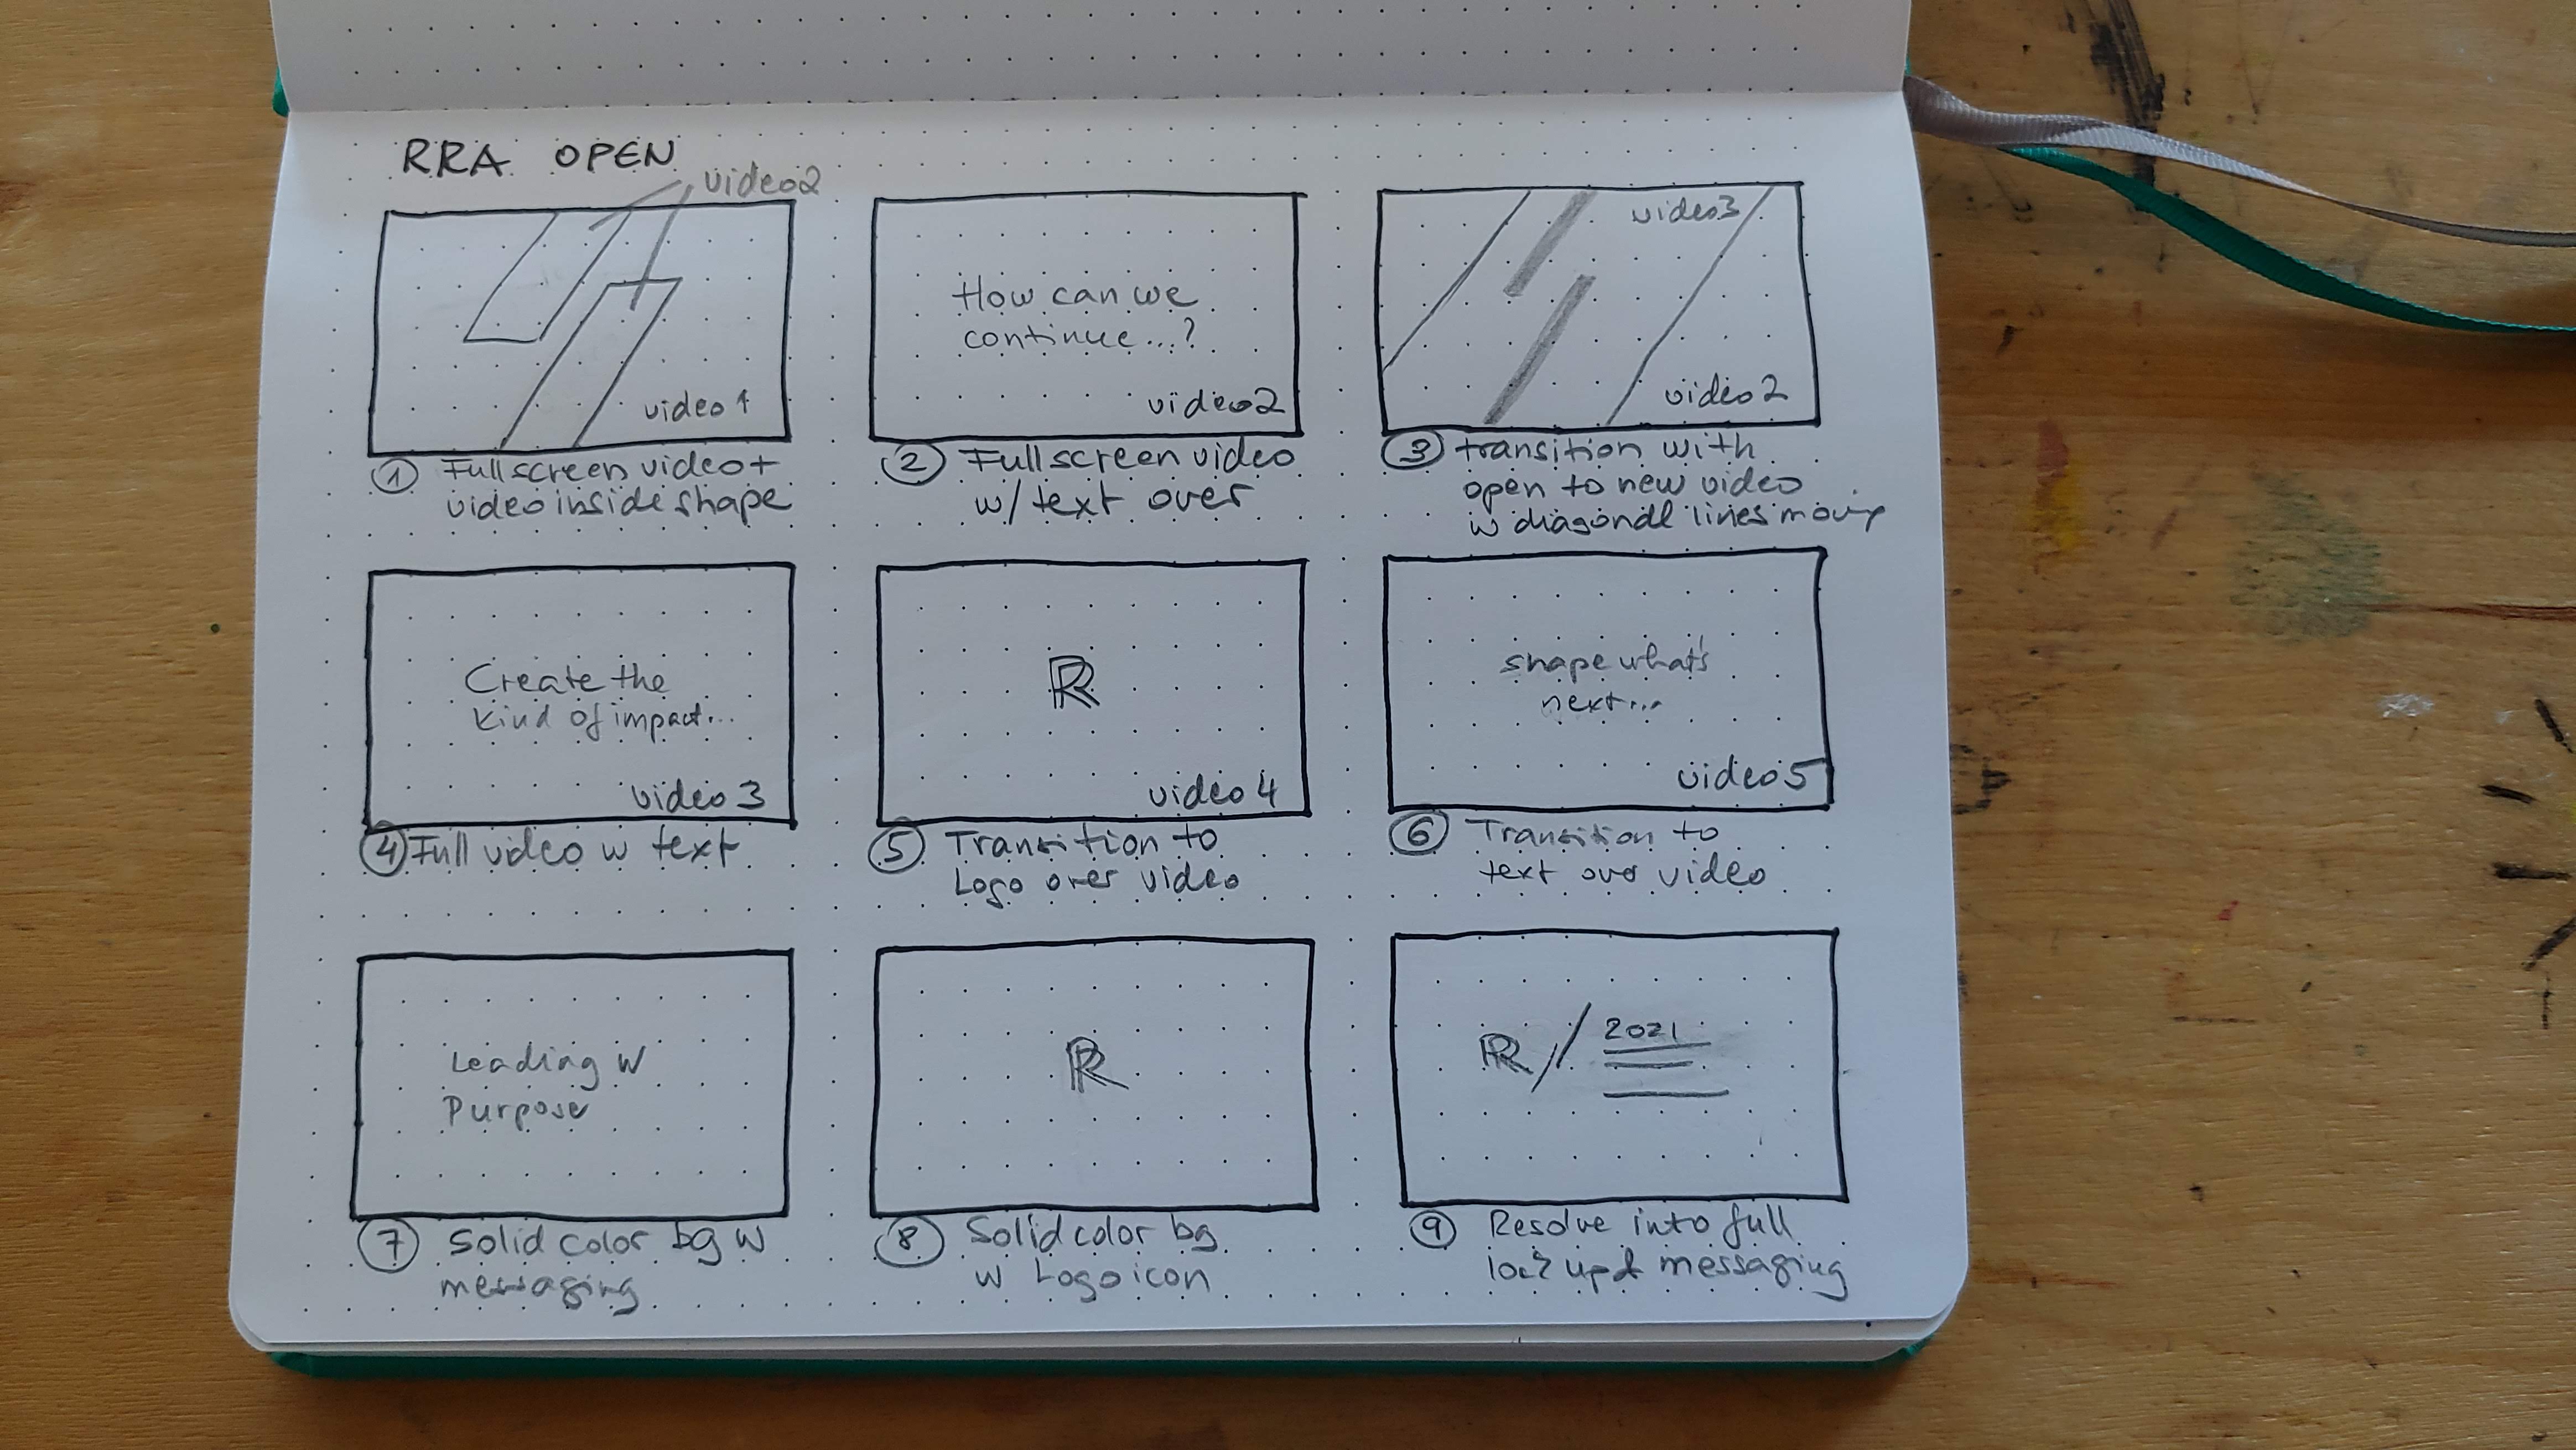 RRA OPEN
video2
video 1
① Fullscreen video +
video inside shape
How can we
continue...?
video2
② Fullscreen video
w/ text over
video3
video 2
③ transition with
open to new video
w diagonal lines moving
Create the
kind of impact...
video 3
④ Full video w text
R
video 4
⑤ Transition to
Logo over video
shape what's
next...
video 5
⑥ Transition to
text over video
Leading w
Purpose
⑦ Solid color bg w
messaging
R
⑧ Solid color bg
w Logo icon
R / 2021
⑨ Resolve into full
lock up & messaging